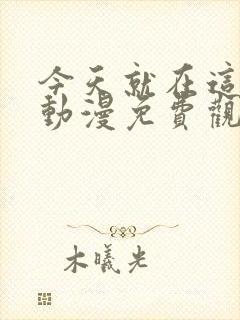 今天就在這
動漫免費觀
木曦光